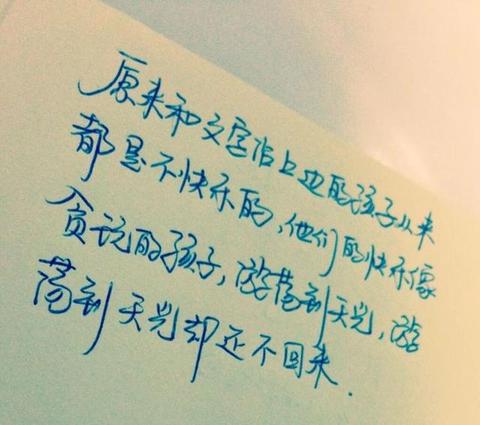 原来和文字沾上边的孩子从来
都是不快乐的,他们的快乐像
贪玩的孩子,游荡到天光,游
荡到天光却还不回来.